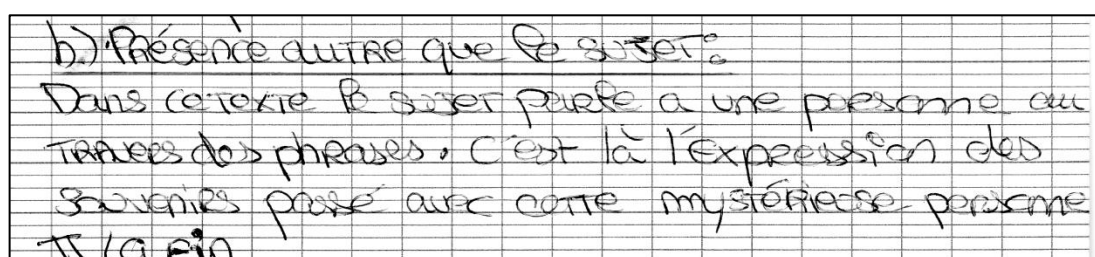 b.) Présence autre que le sujet :
Dans ce texte le sujet parle a une personne au
travers des phrases. C'est là l'expression des
souvenirs passé avec cette mystérieuse personne
II / a fin